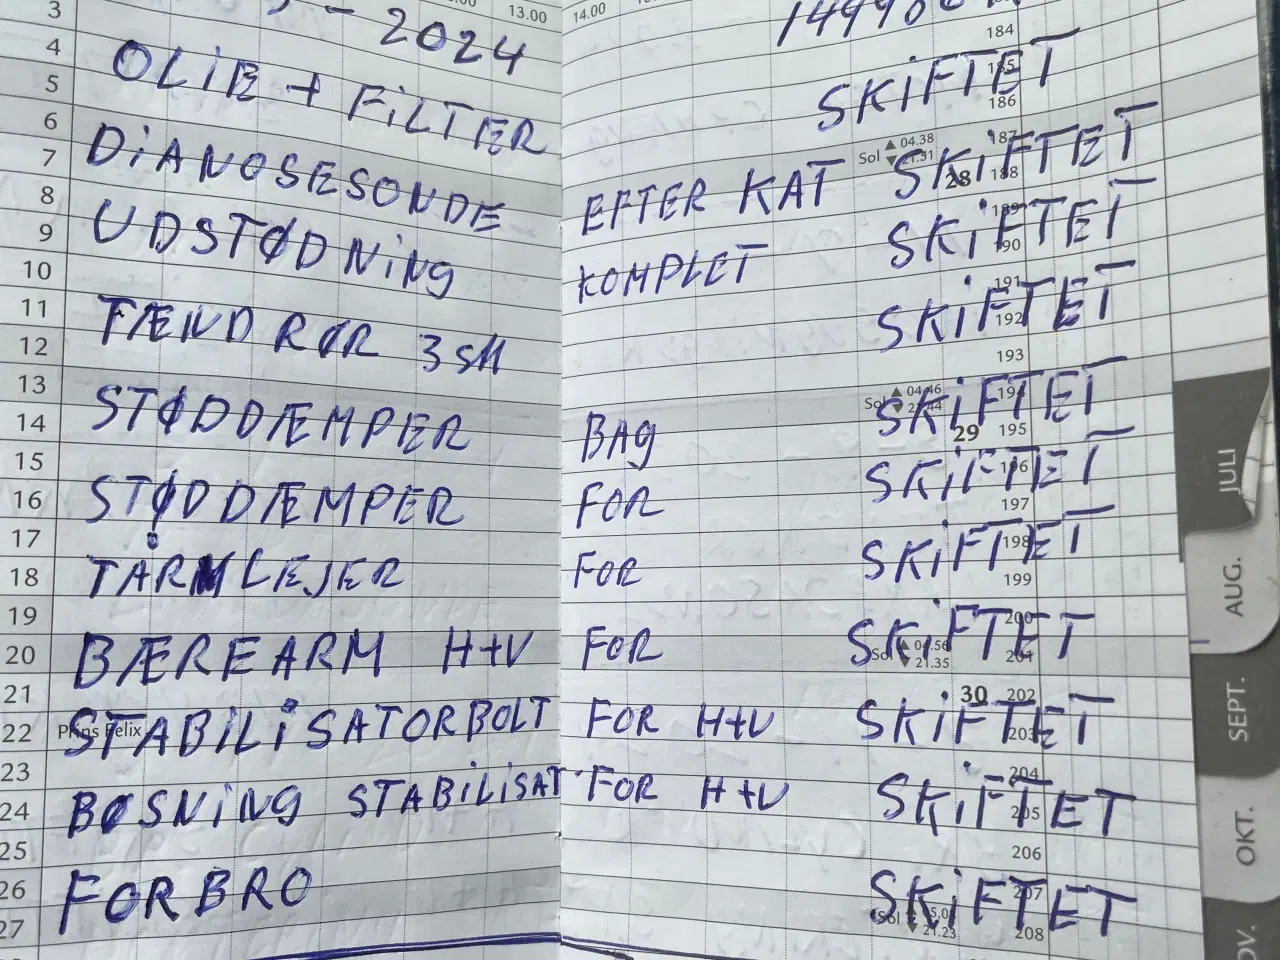 13.00 14.00
3 - 2024
4 184
OLIE + FILTER SKIFTET
5 185
186
6 Sol ▲ 04.38 187
DIANOSESONDE EFTER KAT SKIFTET
7 ▼ 21.51 28 188
8 189
UDSTØDNING KOMPLET SKIFTET
9 190
10 191
TÆNDRØR 3 stk SKIFTET
11 192
12 193
13 Sol ▲ 04.46 194
STØDDÆMPER BAG SKIFTET
14 29 195
15 196
STØDDÆMPER FOR SKIFTET
16 197
17 198
TÅRNLEJER FOR SKIFTET
18 199
19 200
BÆREARM H+V FOR SKIFTET
20 Sol ▲ 04.56 201
▼ 21.35
21 30 202
STABILISATORBOLT FOR H+V SKIFTET
22 Prins Felix 203
23 204
BØSNING STABILISAT FOR H+V SKIFTET
24 205
25 206
26 207
FORBRO SKIFTET
27 Sol ▼ 21.23 208
JULI
AUG.
SEPT.
OKT.